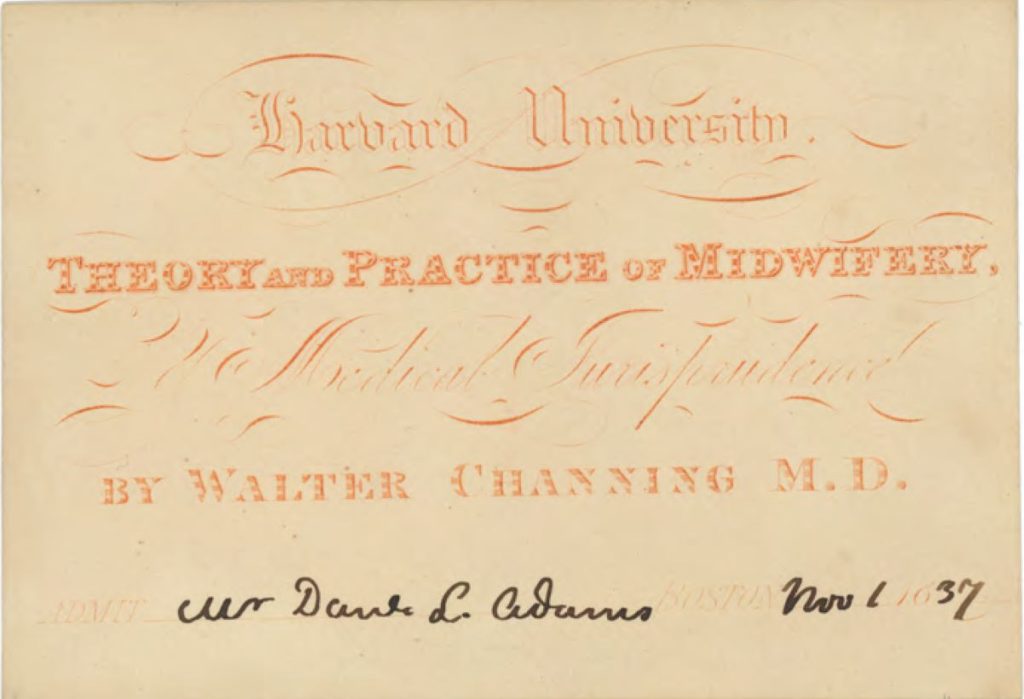 Harvard University.
THEORY AND PRACTICE OF MIDWIFERY,
& Medical Jurisprudence
BY WALTER CHANNING M.D.
ADMIT Mr Danl. L. Adams BOSTON Nov 1 1837